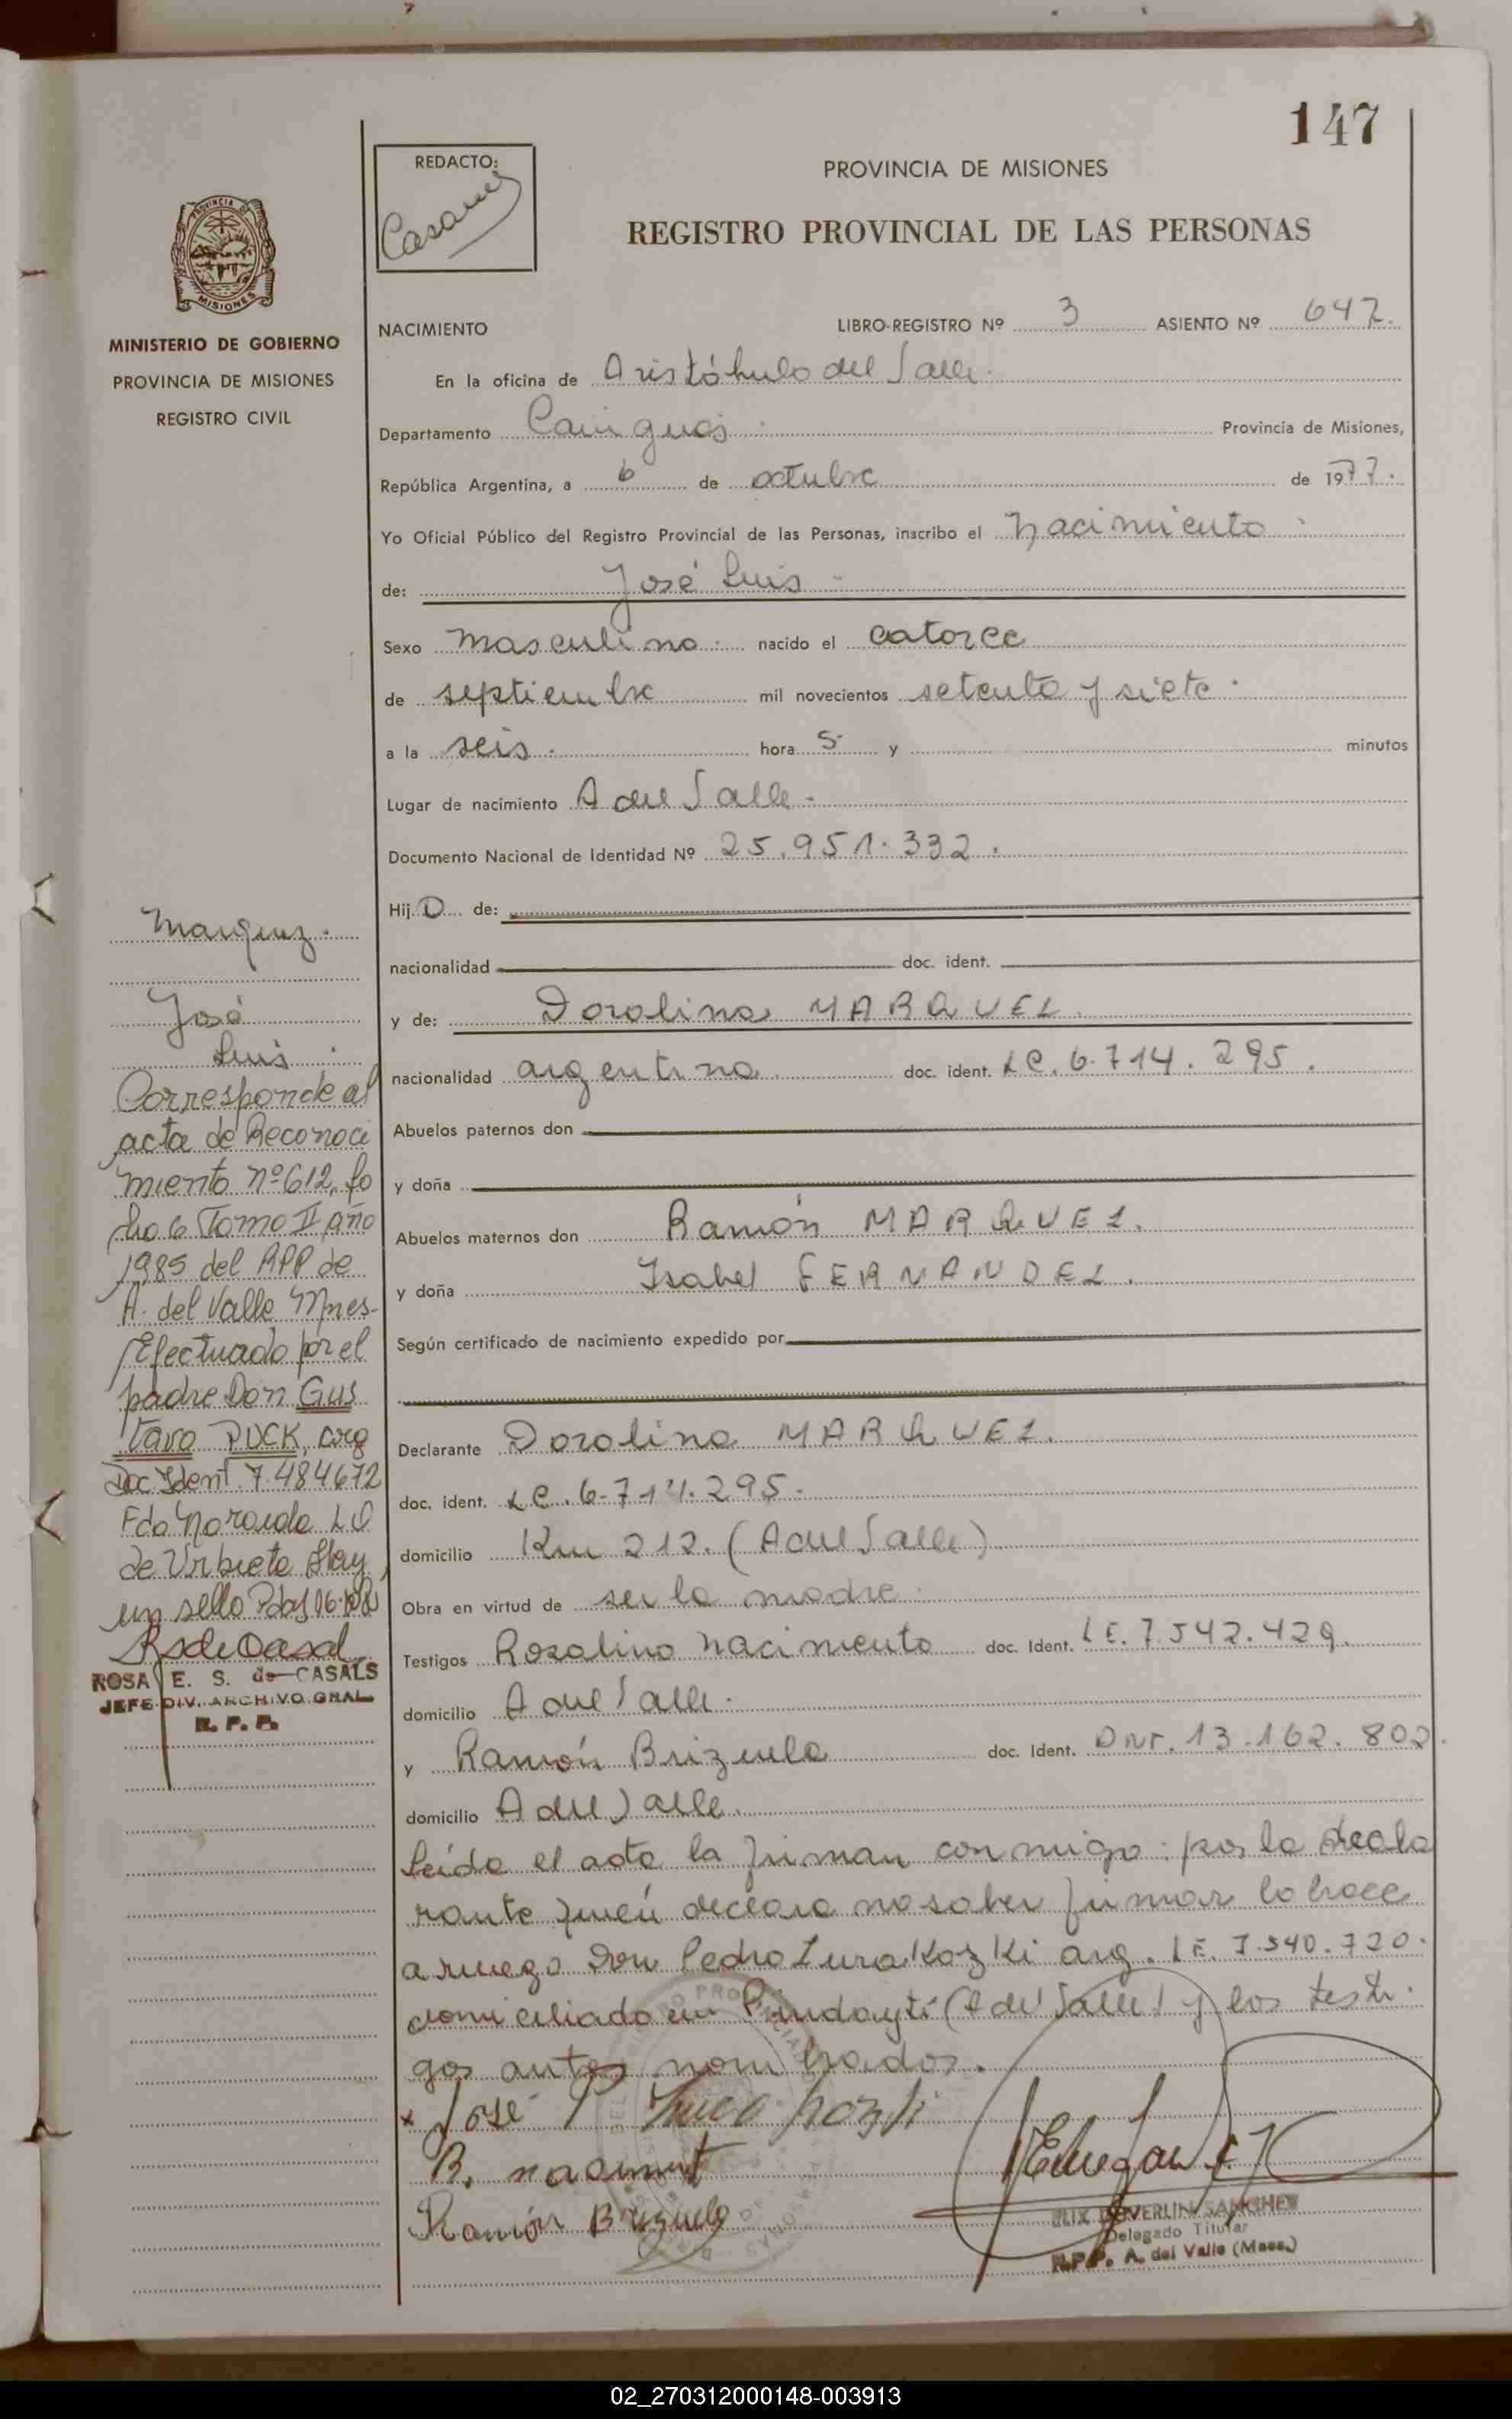 147
REDACTO:
PROVINCIA DE MISIONES
REGISTRO PROVINCIAL DE LAS PERSONAS
PROVINCIA DE
MISIONES
MINISTERIO DE GOBIERNO
PROVINCIA DE MISIONES
REGISTRO CIVIL
NACIMIENTO
LIBRO-REGISTRO Nº 3 ASIENTO Nº 647.
En la oficina de Aristóbulo del Valle.
Departamento Cainguás Provincia de Misiones,
República Argentina, a 6 de octubre de 1977.
Yo Oficial Público del Registro Provincial de las Personas, inscribo el nacimiento
de: José Luis
Sexo masculino nacido el catorce
de septiembre mil novecientos setenta y siete.
a la seis. hora s y minutos
Lugar de nacimiento A del Valle.
Documento Nacional de Identidad Nº 25.951.332.
Hijo de:
nacionalidad doc. ident.
y de: Dorolina MARQUEZ.
nacionalidad argentina doc. ident. LC. 6.714.295.
Abuelos paternos don
y doña
Abuelos maternos don Ramón MARQUEZ.
y doña Isabel FERNANDEZ.
Según certificado de nacimiento expedido por
Declarante Dorolina MARQUEZ.
doc. ident. LC. 6.714.295.
domicilio Km 212. (A del Valle)
Obra en virtud de ser la madre.
Testigos Rosalino nacimento doc. Ident. LE. 7.542.429.
domicilio A del Valle.
y Ramón Brizuela doc. Ident. DNI. 13.162.802.
domicilio A del Valle.
Leida el acta la firman conmigo: por la decla
rante quién declara no saber firmar lo hace
a ruego Don Pedro Zurakozki arg. LE. 7.540.720.
domiciliado en Pindaytí (A del Valle) y los testi.
gos antes nombrados.
x José P
R. naciment
Ramón Brizuela
Delegado Titular
R.P.P. A. del Valle (Mnes.)
Marquez.
José
Luis.
Corresponde al
acta de Reconoci
miento nº 612, fo
lio 6 Tomo II año
1985 del RPP de
A. del Valle Mnes-
Efectuado por el
padre Don Gus
tavo PUCK, arg
Doc Ident. 7.484672
Fdo
de Urbieta Hay
un sello Pdas
ROSA E. S. de CASALS
JEFE DIV. ARCHIVO GRAL
R. P. P.
02_270312000148-003913